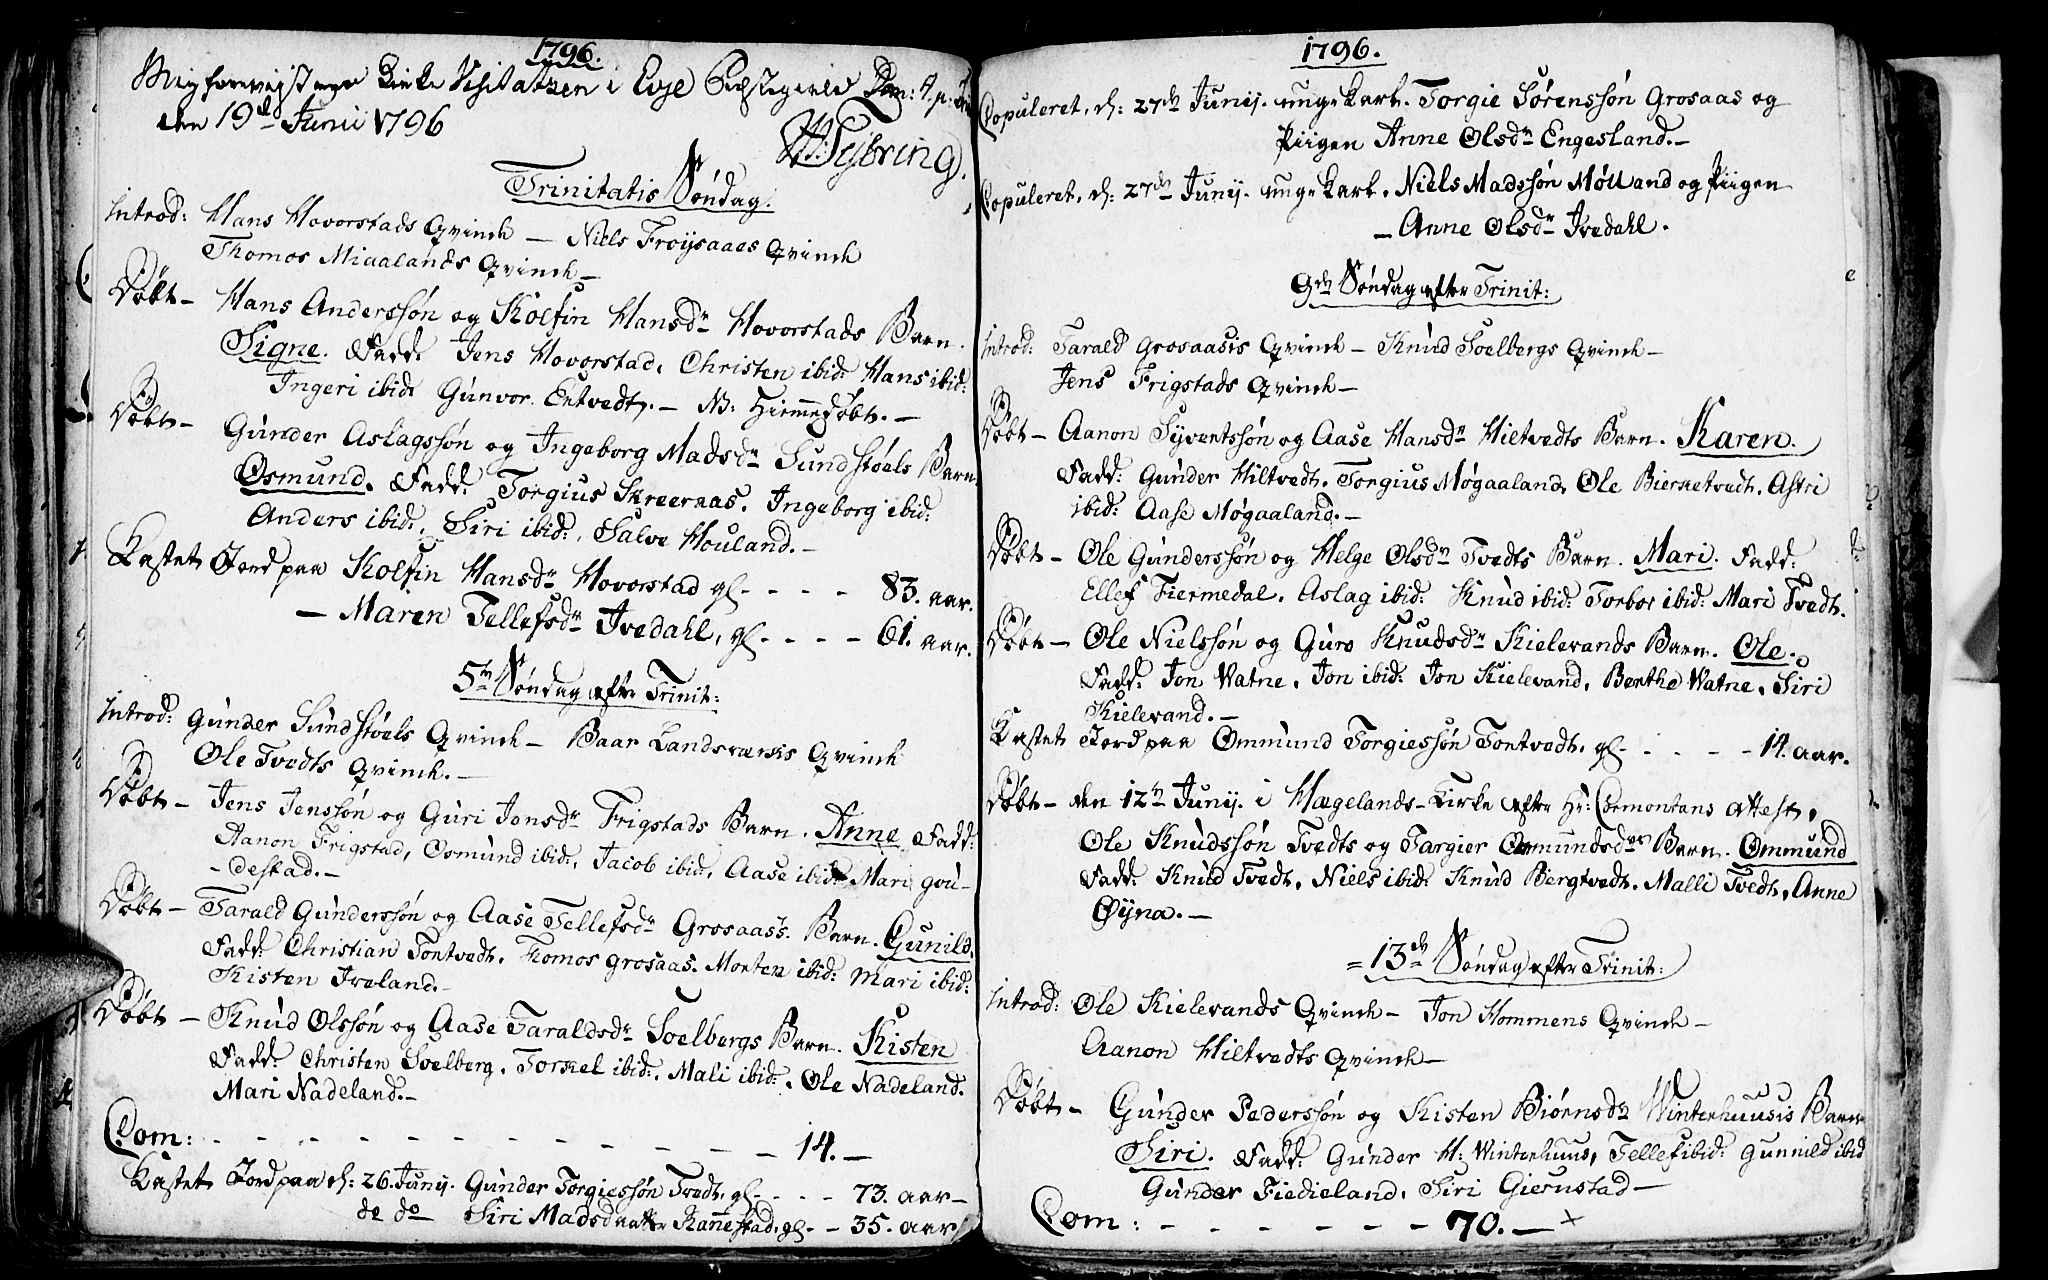 1796.
Mig forevijst ved Kirke Visitatzen i Evje Præstegield Dom: 4. p: Tri
den 19d. Junii 1796
Sybring
Trinitatis Søndag.
Introd: Hans Hovorstads Qvinde — Niels Frøysaaes Qvinde
Thomos Migalands Qvinde —
Døbt — Hans Anderssøn og Kolfin Hansdr Hovorstads Barn.
Signe. Fadd: Jens Hovorstad, Christen ibid: Hans ibid:
Ingeri ibid: Gunvor Eptvedt. — NB: Hiemmedøbt. —
Døbt — Gunder Aslagssøn og Ingeborg Madsdr Sundstøels Barn
Osmund. Fadd: Torgius Skreeraas. Ingeborg ibid:
Anders ibid:, Siri ibid:, Salve Houland. —
Kastet Jord paa Kolfin Hansdr Hovorstad gl. - - - - 83. aar.
— Maren Tellefsdr Ivedahl, gl. - - - - 61. aar.
5te Søndag efter Trinit:
Introd: Gunder Sundstøels Qvinde — Baar Landsværks Qvinde
Ole Tvedts Qvinde. —
Døbt — Jens Jenssøn og Guri Jonsdr Frigstads Barn. Anne Fadd:
Aanon Frigstad, Osmund ibid:, Jacob ibid, Aase ibid: Mari gou-
- destad. —
Døbt — Tarald Gunderssøn og Aase Tellefsdr Grosaas's. Barn. Gunild.
Fadd: Christian Tontvedt. Thomos Grosaas. Morten ibid: Mari ibid:
Kisten Iveland. —
Døbt — Knud Olssøn og Aase Taraldsdr Soelbergs Barn. Kisten
Fadd: Christen Soelberg. Torkel ibid:. Mali ibid:. Ole Nadeland.
Mari Nadeland. —
Com: - - - - - - - - - - - 14. —
Kastet Jord paa d: 26. Junij. Gunder Torgiessøn Tvedt, gl. - - - - 73. aar —
do do Siri Madsdaatter Rannestad, gl. - - 35. aar
1796.
Copuleret, d: 27de Junij. unge Karl. Torgie Sørenssøn Grosaas og
Piigen Anne Olsdr Engesland. —
Copuleret, d: 27de Junij. unge Karl. Niels Madssøn Mølland og Piigen
— Anne Olsdr Ivedahl.
9de Søndag efter Trinit:
Introd: Tarald Grosaasis Qvinde — Knud Soelbergs Qvinde —
Jens Frigstads Qvinde —
Døbt — Aanon Syvertssøn og Aase Hansdr Hiltvedts Barn. Karen.
Fadd: Gunder Hiltvedt. Torgius Møgaaland, Ole Bierketvedt. Astri
ibid: Aase Møgaaland. —
Døbt — Ole Gunderssøn og Helge Olsdr Tvedts Barn. Mari. Fadd:
Ellef Fiermedal. Aslag ibid: Knud ibid: Torbor ibid: Mari Tvedt.
Døbt — Ole Nielssøn og Guro Knudsdr Kielevands Barn. Ole.
Fadd: Jon Vatne. Jon ibid: Jon Kielevand. Berthe Vatne. Siri
Kielevand. —
Kastet Jord paa Ommund Torgiessøn Tontvedt. gl - - - - - 14. aar.
Døbt — den 12te Junij. i Hægelands-Kirke efter Hr: Attest,
Ole Knudssøn Tvedts og Targier Ommundsdr Barn. Ommund
Fadd: Knud Tvedt. Niels ibid: Knud Bergtvedt. Malli Tvedt, Anne
Øyna. —
= 13de Søndag efter Trinit:
Introd: Ole Kielevands Qvinde — Jon Hommens Qvinde —
Aanon Hiltvedts Qvinde —
Døbt — Gunder Pederssøn og Kisten Biørnsdr Winterhuusis Barn
Siri. Fadd: Gunder H: Winterhuus, Tellef ibid: Gunnild ibid
Gunder Fiedieland. Siri Giernstad —
Com: - - - - - - - 70. —